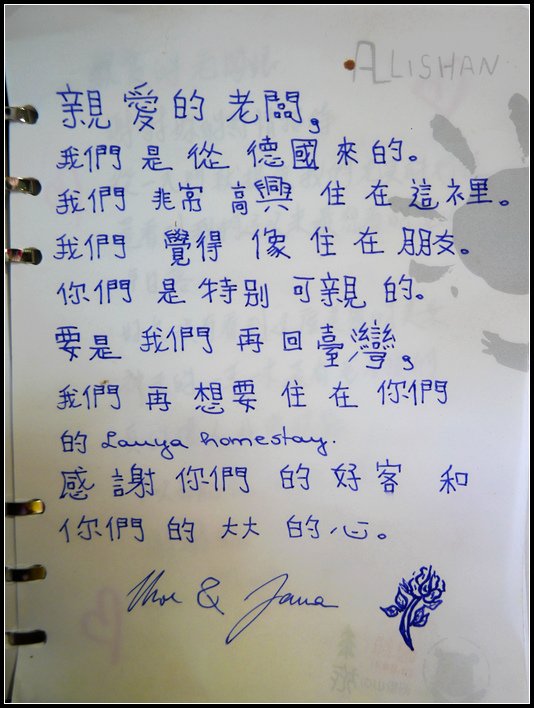 ALISHAN
親愛的老闆,
我們是從德國來的。
我們非常高興住在這裡。
我們覺得像住在朋友。
你們是特別可親的。
要是我們再回臺灣,
我們再想要住在你們
的 Lauya homestay.
感謝你們的好客和
你們的大大的心。
& Jana